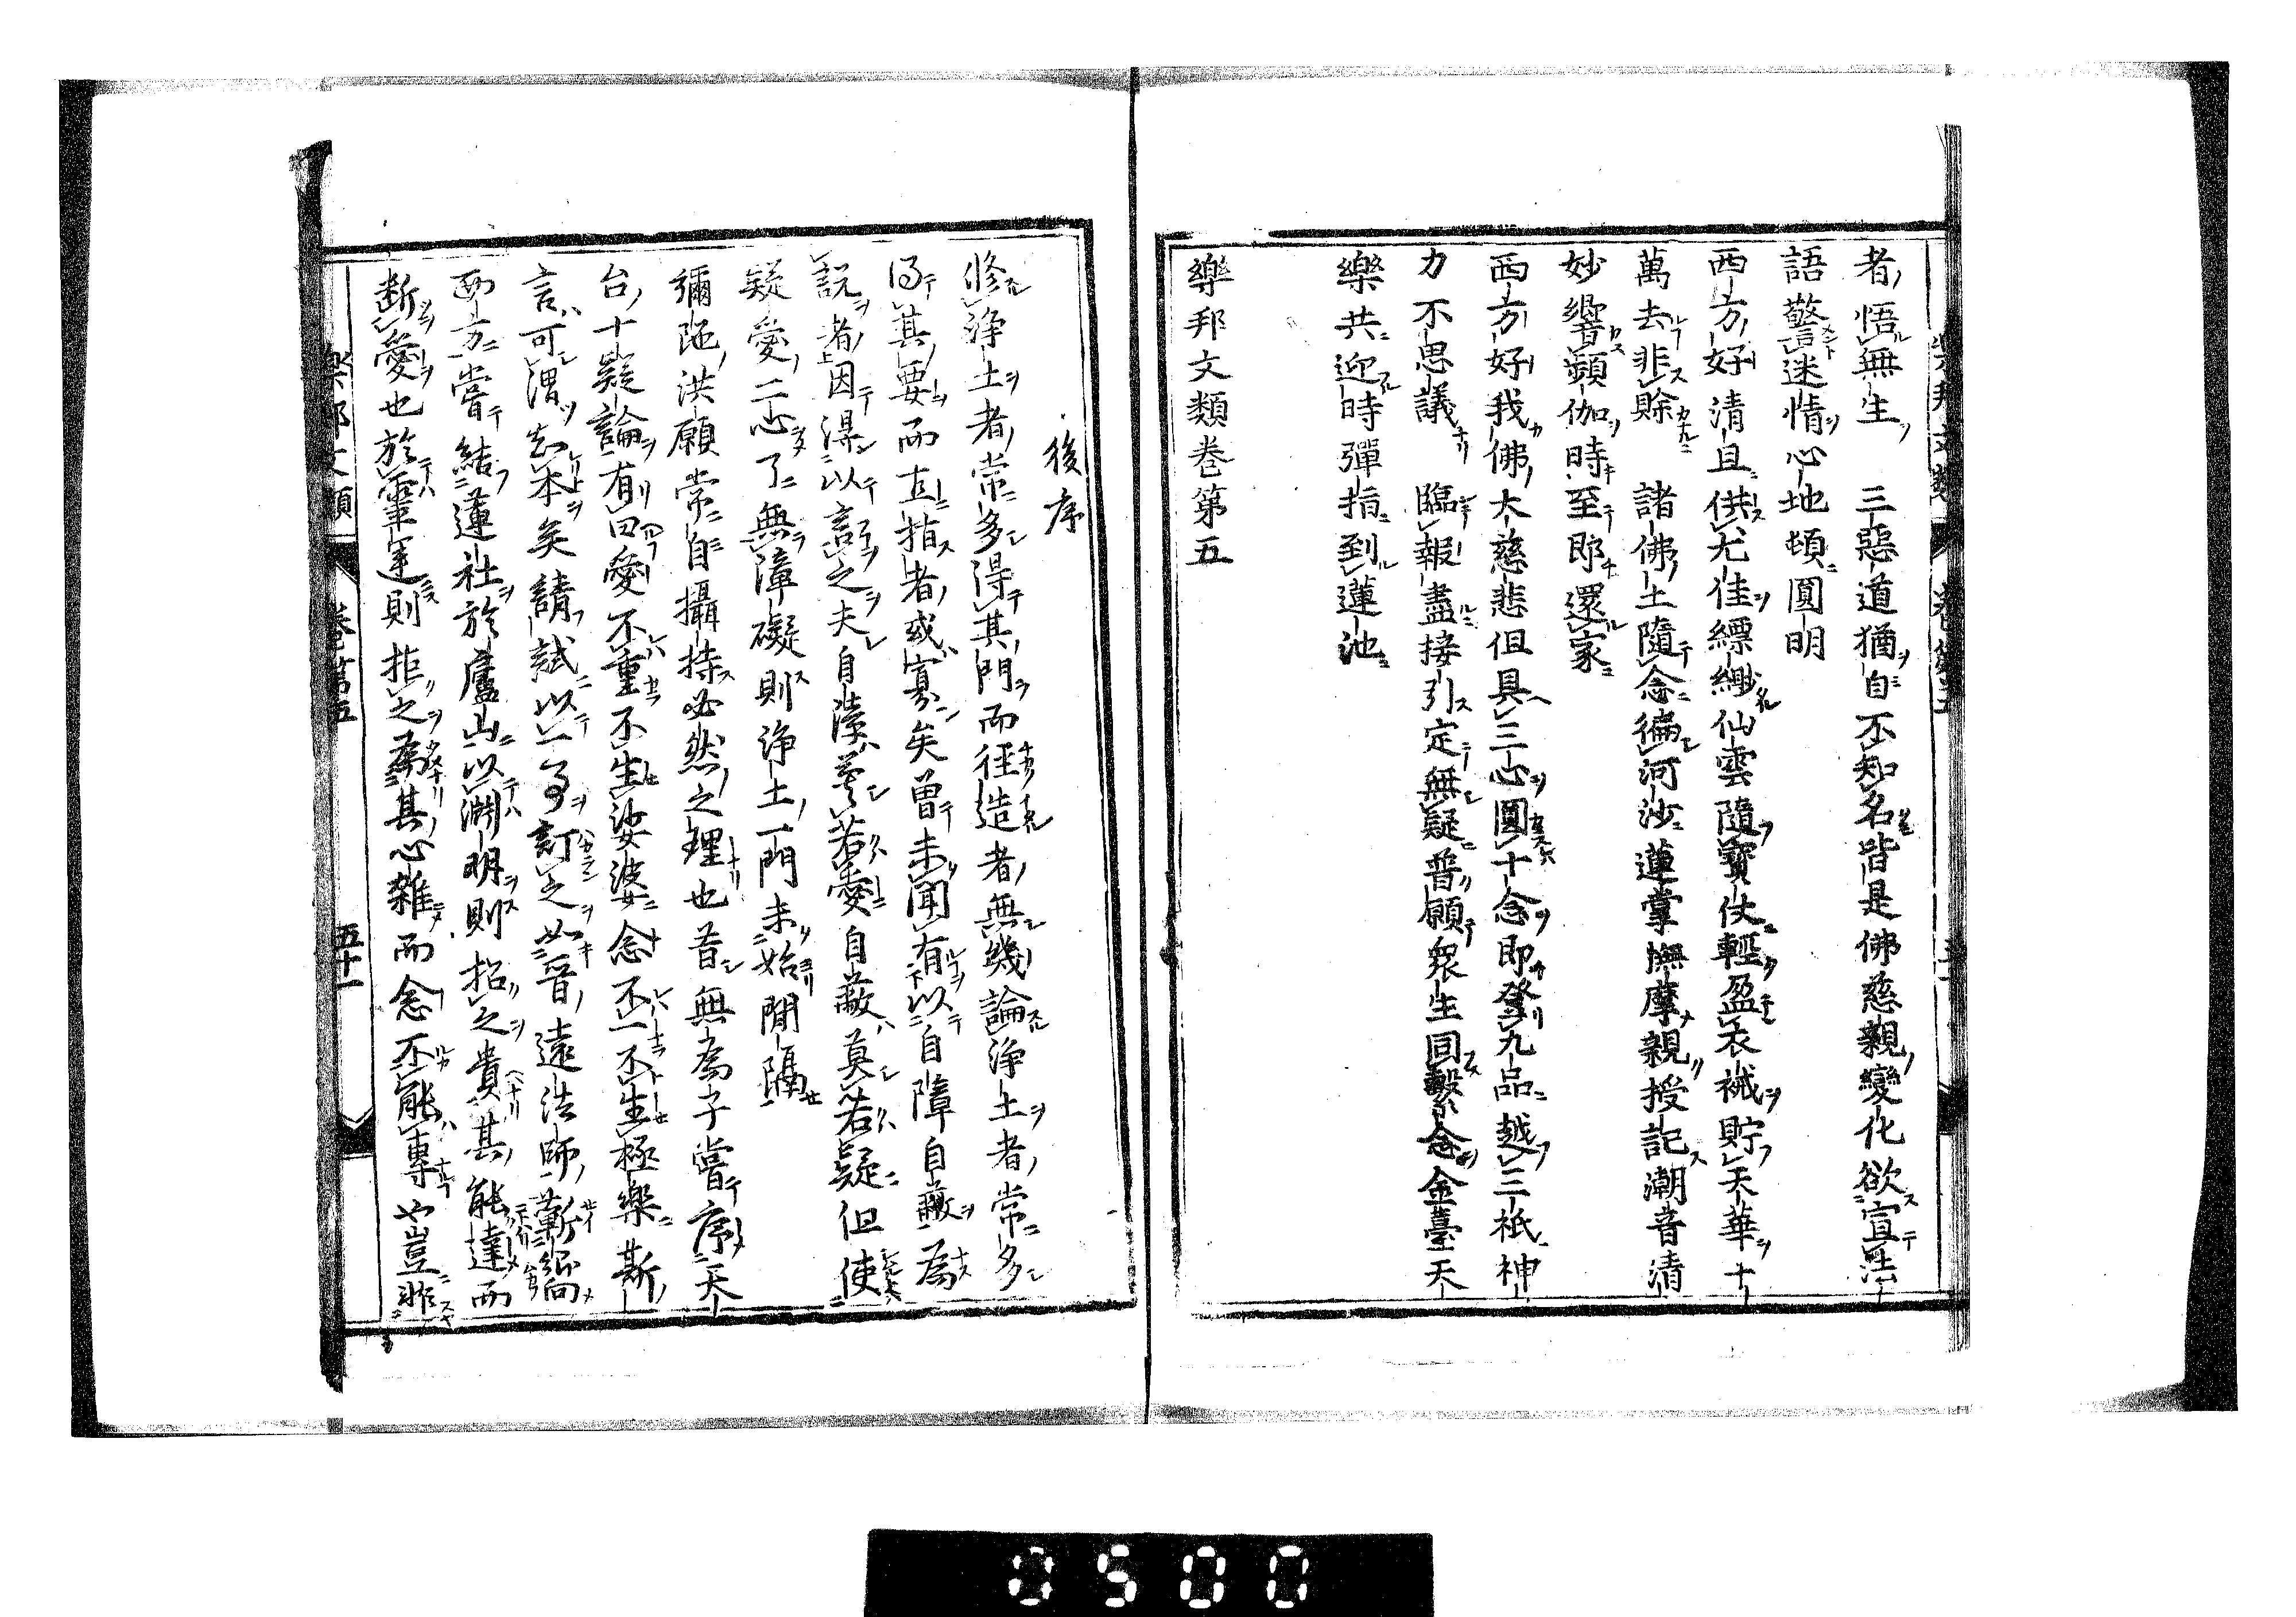 者悟無生　三惡道猶自不知名皆是佛慈親變化欲宣法
語警迷情心地頓圓明
西方好清旦供尤佳縹緲仙雲隨寶仗輕盈衣裓貯天華十
萬去非賒　諸佛土隨念徧河沙蓮掌撫摩親授記潮音清
妙響頻伽時至即還家
西方好我佛大慈悲但具三心圓十念即登九品越三祇神
力不思議　臨報盡接引定無疑普願眾生同繫念金臺天
樂共迎時彈指到蓮池
樂邦文類卷第五
後序
修淨土者常多得其門而徑造者無幾論淨土者常多
得其要而直指者或寡矣曾未聞有以自障自蔽為
說者因得以言之夫自障莫若愛自蔽莫若疑但使
疑愛二心了無障礙則淨土一門未始間隔
彌陀洪願常自攝持必然之理也昔無為子嘗序天
台十疑論有曰愛不重不生娑婆念不一不生極樂斯
言可謂知本矣請試以一事訂之如晉遠法師蘄嚮
西方嘗結蓮社於廬山以淵明則招之貴其能達而
断愛也於靈運則拒之為其心雜而念不能專也豈非
樂邦文類　卷第五　五十一
0500